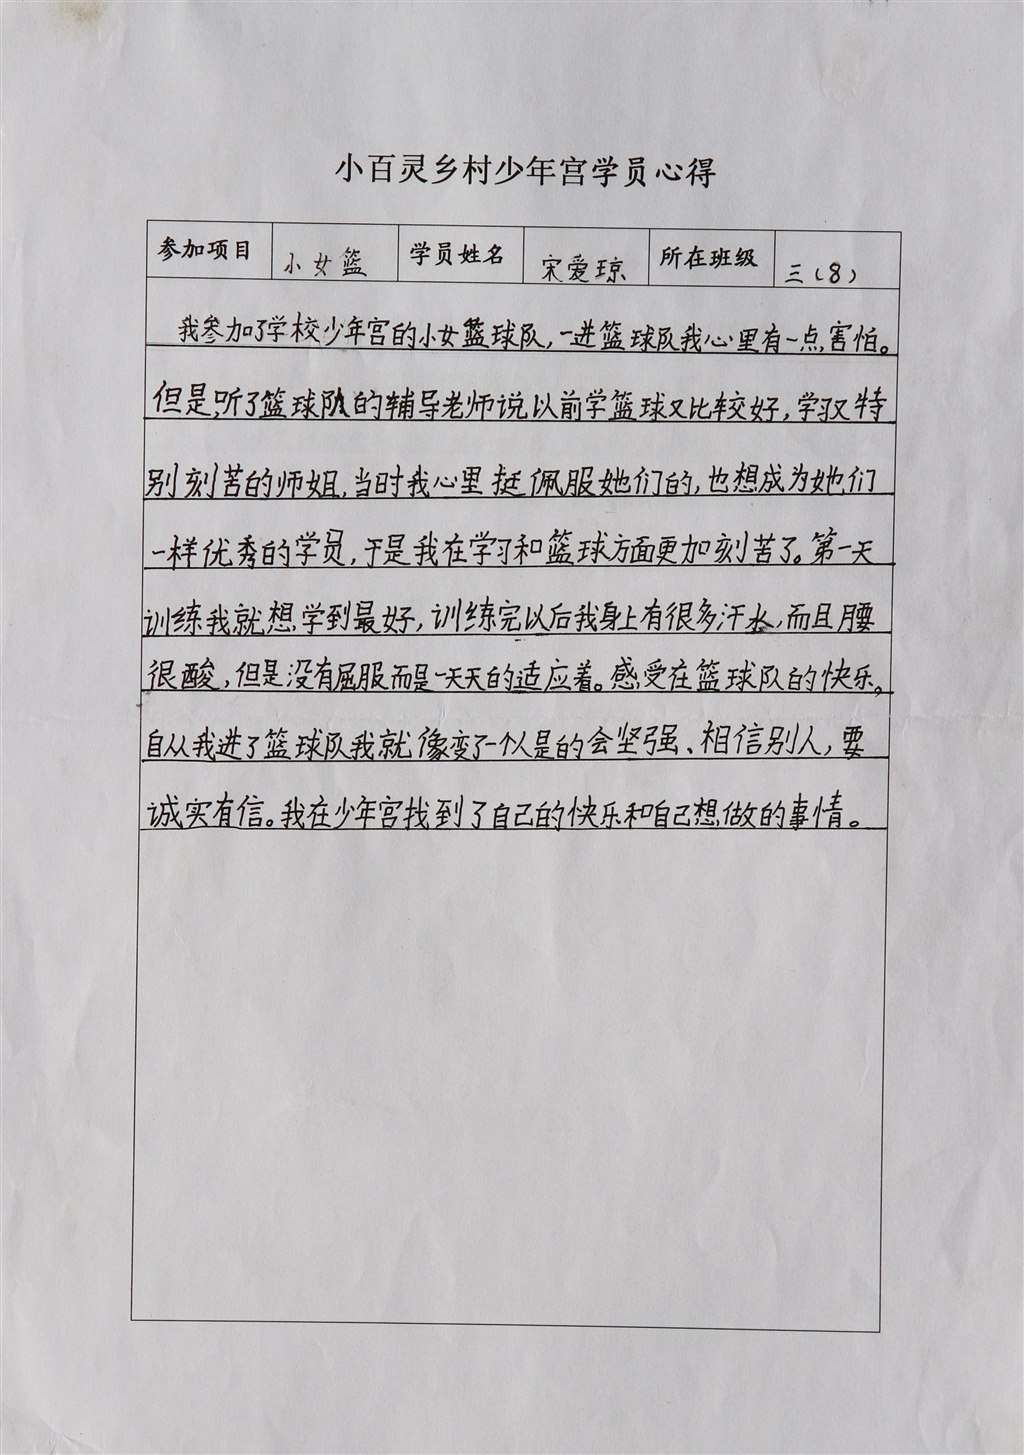 小百灵乡村少年宫学员心得
参加项目 小女篮 学员姓名 宋爱琼 所在班级 三(8)
我参加了学校少年宫的小女篮球队,一进篮球队我心里有一点害怕。
但是,听了篮球队的辅导老师说以前学篮球又比较好,学习又特
别刻苦的师姐,当时我心里挺佩服她们的,也想成为她们
一样优秀的学员,于是我在学习和篮球方面更加刻苦了。第一天
训练我就想学到最好,训练完以后我身上有很多汗水,而且腰
很酸,但是没有屈服而是一天天的适应着。感受在篮球队的快乐。
自从我进了篮球队我就像变了一个人是的会坚强、相信别人,要
诚实有信。我在少年宫找到了自己的快乐和自己想做的事情。